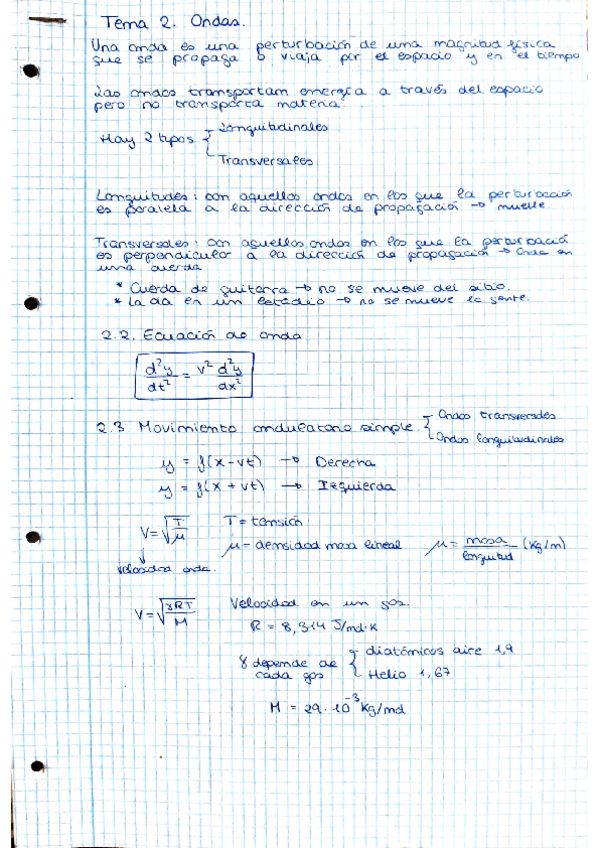 Tema 2. Ondas.
Una onda es una perturbación de una magnitud física
que se propaga o viaja por el espacio y en el tiempo
Las ondas transportan energía a través del espacio
pero no transporta materia.
Hay 2 tipos { Longuitudinales
Transversales
Longuitudes: son aquellas ondas en las que la perturbación
es paralela a la dirección de propagación → muelle
Transversales: son aquellas ondas en las que la perturbació
es perpendicular a la dirección de propagación → Onda en
una cuerda
* Cuerda de guitarra → no se mueve del sitio.
* La ola en un estadio → no se mueve la gente.
2.2. Ecuación de onda
d²y/dt² = v² d²y/dx²
2.3 Movimiento ondulatorio simple { Ondas transversales
Ondas longuitudinales
y = f(x - vt) → Derecha
y = f(x + vt) → Izquierda
V = √(T/μ) T = tensión
μ = densidad masa lineal μ = masa/longuitud (Kg/m)
velocidad onda.
V = √(γRT/M) Velocidad en un gas.
R = 8,314 J/mol·K
γ depende de cada gas { diatómicos aire 1,4
Helio 1,67
M = 29·10⁻³ Kg/mol